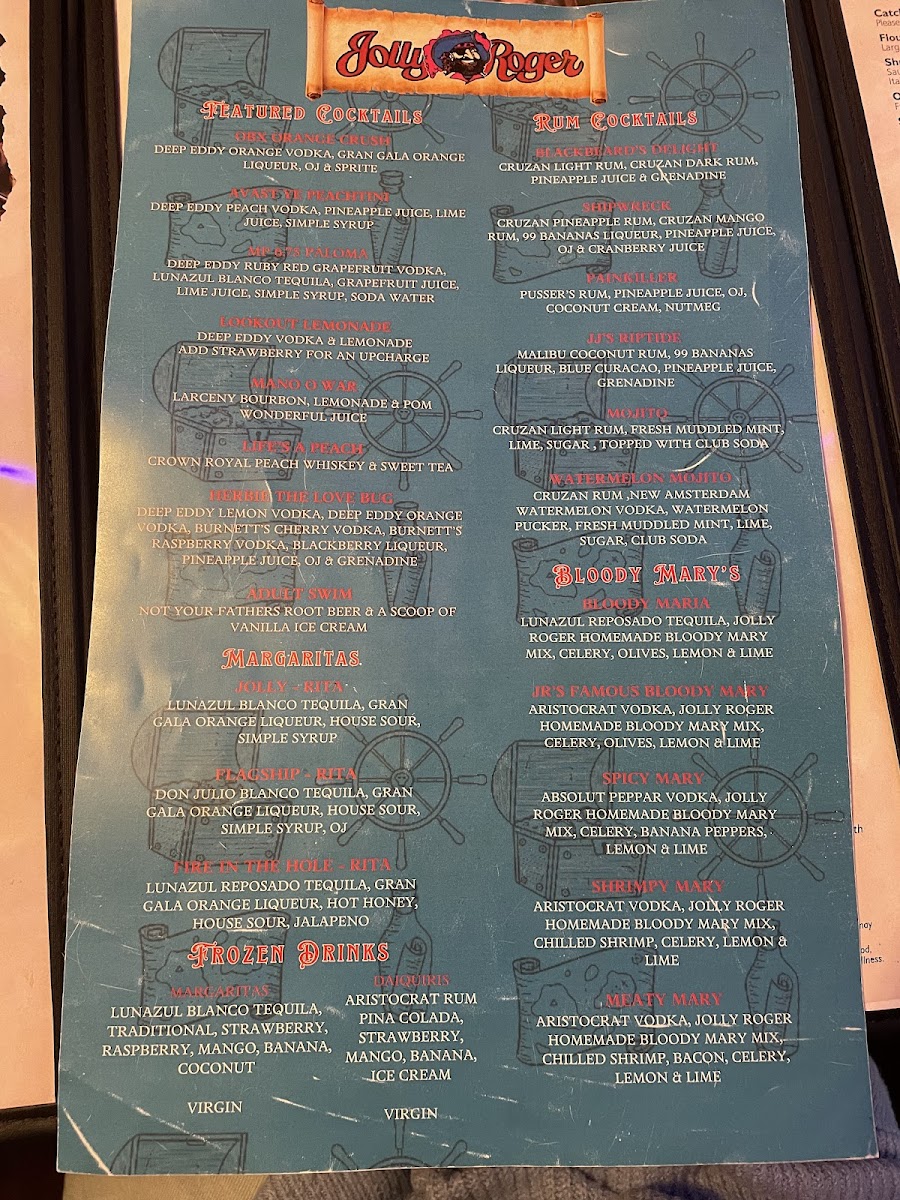 Jolly Roger
Featured Cocktails
OBX ORANGE CRUSH
DEEP EDDY ORANGE VODKA, GRAN GALA ORANGE
LIQUEUR, OJ & SPRITE
AVAST YE PEACHTINI
DEEP EDDY PEACH VODKA, PINEAPPLE JUICE, LIME
JUICE, SIMPLE SYRUP
MP 6.75 PALOMA
DEEP EDDY RUBY RED GRAPEFRUIT VODKA,
LUNAZUL BLANCO TEQUILA, GRAPEFRUIT JUICE,
LIME JUICE, SIMPLE SYRUP, SODA WATER
LOOKOUT LEMONADE
DEEP EDDY VODKA & LEMONADE
ADD STRAWBERRY FOR AN UPCHARGE
MANO O WAR
LARCENY BOURBON, LEMONADE & POM
WONDERFUL JUICE
LIFE'S A PEACH
CROWN ROYAL PEACH WHISKEY & SWEET TEA
HERBIE THE LOVE BUG
DEEP EDDY LEMON VODKA, DEEP EDDY ORANGE
VODKA, BURNETT'S CHERRY VODKA, BURNETT'S
RASPBERRY VODKA, BLACKBERRY LIQUEUR,
PINEAPPLE JUICE, OJ & GRENADINE
ADULT SWIM
NOT YOUR FATHERS ROOT BEER & A SCOOP OF
VANILLA ICE CREAM
Margaritas
JOLLY - RITA
LUNAZUL BLANCO TEQUILA, GRAN
GALA ORANGE LIQUEUR, HOUSE SOUR,
SIMPLE SYRUP
FLAGSHIP - RITA
DON JULIO BLANCO TEQUILA, GRAN
GALA ORANGE LIQUEUR, HOUSE SOUR,
SIMPLE SYRUP, OJ
FIRE IN THE HOLE - RITA
LUNAZUL REPOSADO TEQUILA, GRAN
GALA ORANGE LIQUEUR, HOT HONEY,
HOUSE SOUR, JALAPENO
Frozen Drinks
MARGARITAS
LUNAZUL BLANCO TEQUILA,
TRADITIONAL, STRAWBERRY,
RASPBERRY, MANGO, BANANA,
COCONUT
VIRGIN
DAIQUIRIS
ARISTOCRAT RUM
PINA COLADA,
STRAWBERRY,
MANGO, BANANA,
ICE CREAM
VIRGIN
Rum Cocktails
BLACKBEARD'S DELIGHT
CRUZAN LIGHT RUM, CRUZAN DARK RUM,
PINEAPPLE JUICE & GRENADINE
SHIPWRECK
CRUZAN PINEAPPLE RUM, CRUZAN MANGO
RUM, 99 BANANAS LIQUEUR, PINEAPPLE JUICE,
OJ & CRANBERRY JUICE
PAINKILLER
PUSSER'S RUM, PINEAPPLE JUICE, OJ,
COCONUT CREAM, NUTMEG
JJ'S RIPTIDE
MALIBU COCONUT RUM, 99 BANANAS
LIQUEUR, BLUE CURACAO, PINEAPPLE JUICE,
GRENADINE
MOJITO
CRUZAN LIGHT RUM, FRESH MUDDLED MINT,
LIME, SUGAR , TOPPED WITH CLUB SODA
WATERMELON MOJITO
CRUZAN RUM ,NEW AMSTERDAM
WATERMELON VODKA, WATERMELON
PUCKER, FRESH MUDDLED MINT, LIME,
SUGAR, CLUB SODA
Bloody Mary's
BLOODY MARIA
LUNAZUL REPOSADO TEQUILA, JOLLY
ROGER HOMEMADE BLOODY MARY
MIX, CELERY, OLIVES, LEMON & LIME
JR'S FAMOUS BLOODY MARY
ARISTOCRAT VODKA, JOLLY ROGER
HOMEMADE BLOODY MARY MIX,
CELERY, OLIVES, LEMON & LIME
SPICY MARY
ABSOLUT PEPPAR VODKA, JOLLY
ROGER HOMEMADE BLOODY MARY
MIX, CELERY, BANANA PEPPERS,
LEMON & LIME
SHRIMPY MARY
ARISTOCRAT VODKA, JOLLY ROGER
HOMEMADE BLOODY MARY MIX,
CHILLED SHRIMP, CELERY, LEMON &
LIME
MEATY MARY
ARISTOCRAT VODKA, JOLLY ROGER
HOMEMADE BLOODY MARY MIX,
CHILLED SHRIMP, BACON, CELERY,
LEMON & LIME